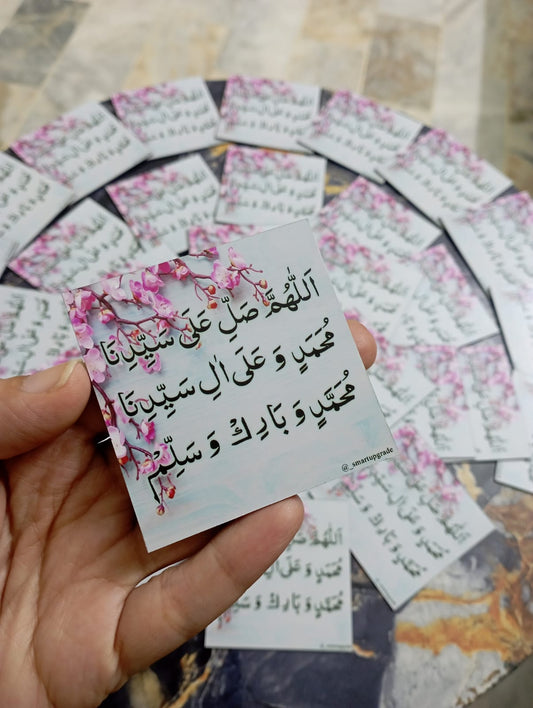 اَللّٰهُمَّ صَلِّ عَلَى سَيِّدِنَا
مُحَمَّدٍ وَ عَلَى اٰلِ سَيِّدِنَا
مُحَمَّدٍ وَ بَارِكْ وَ سَلِّمْ
@_smartupgrade